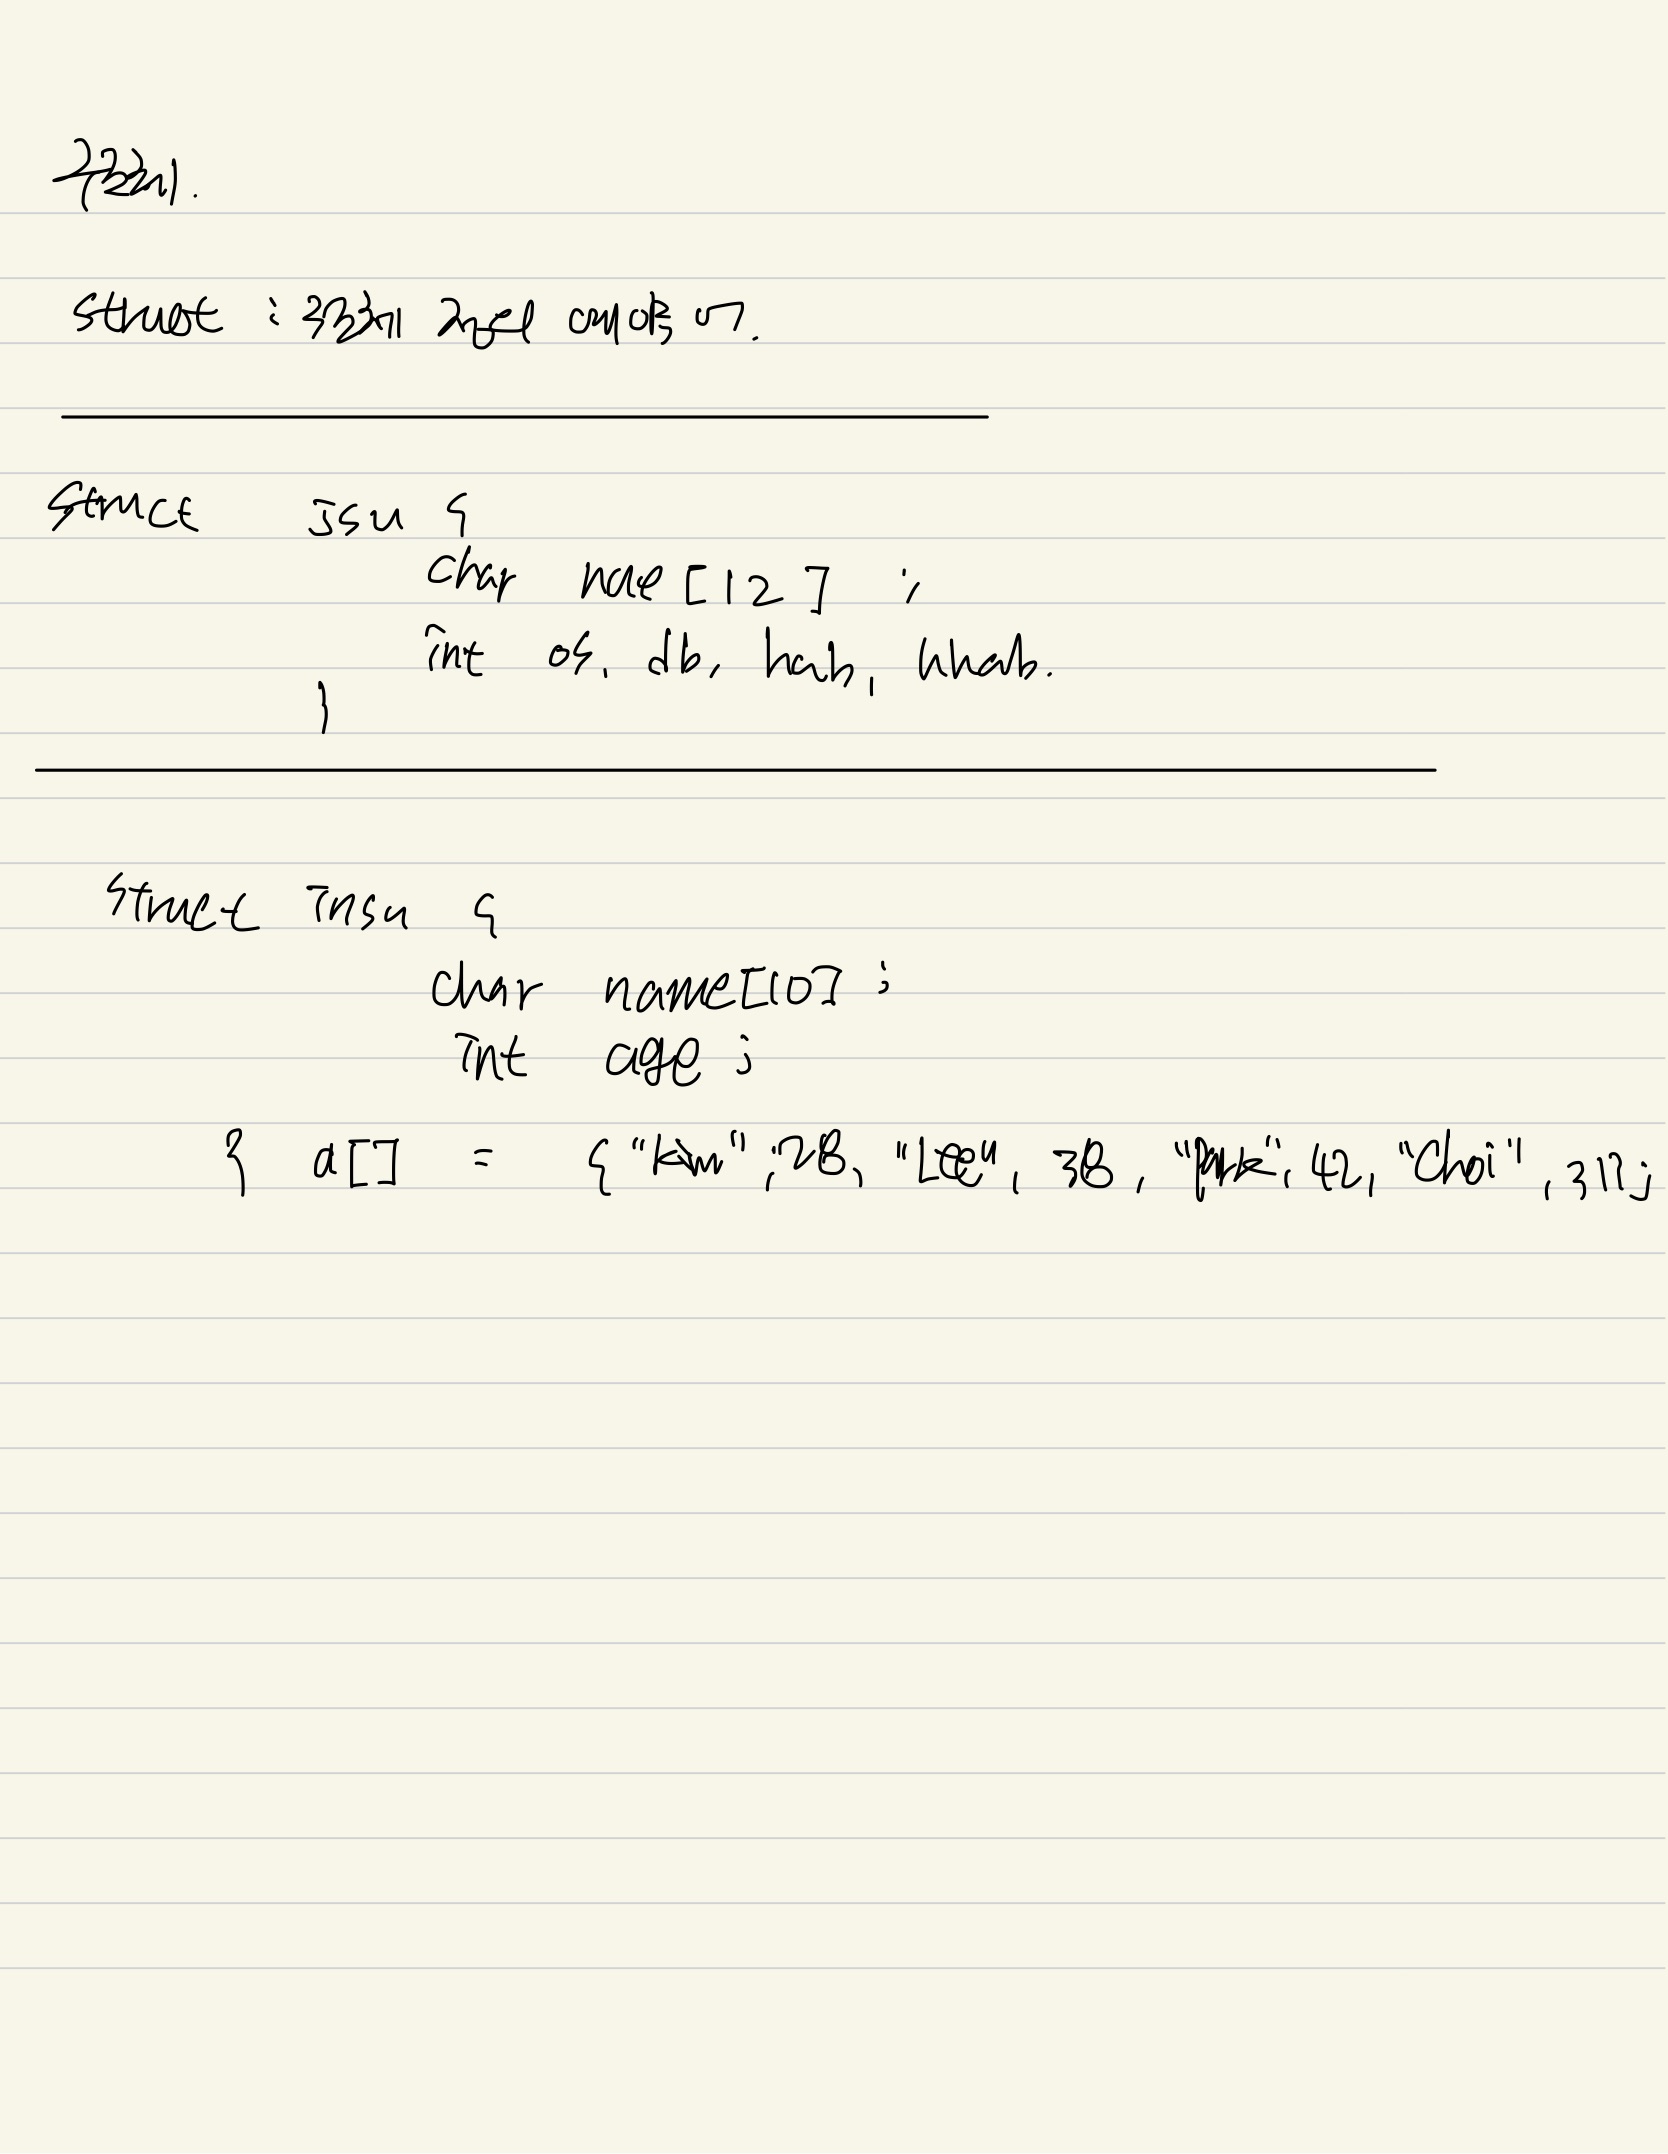 구조체.
struct : 구조체 정의 예약어.
struct jsu {
char nae[12] ;
int os, db, hab, hhab.
}
struct insu {
char name[10] ;
int age ;
} a[] = { "kim", 28, "Lee", 38, "Park", 42, "Choi", 31};